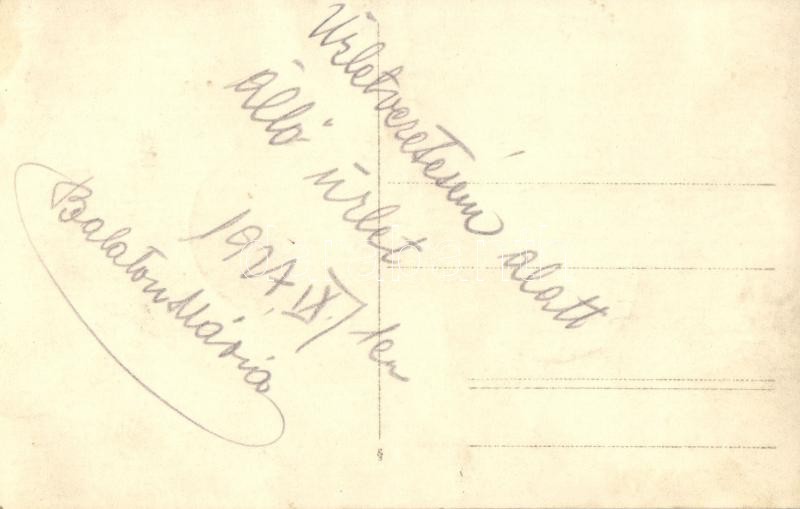 Üzletvezetésem alatt
álló üzlet
1927. IX. 1en
BalatonMária